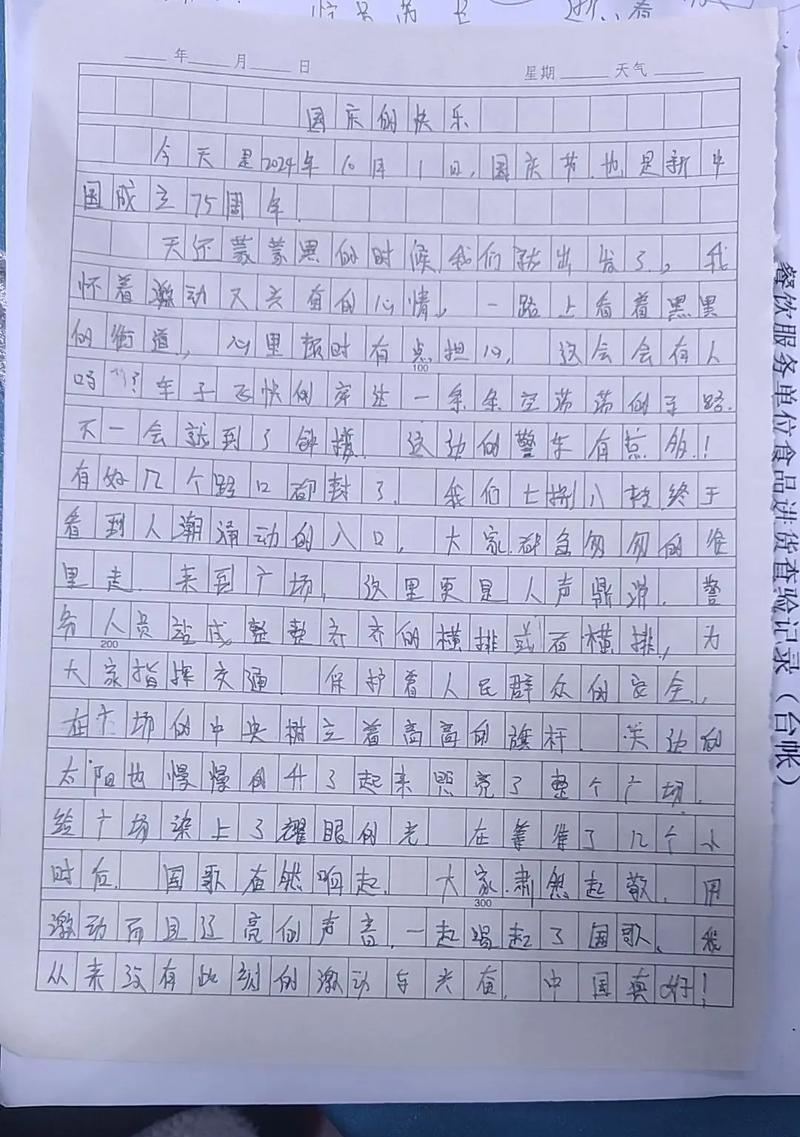 年 月 日 星期 天气
国庆的快乐
今天是2024年10月1日,国庆节.也是新中
国成立75周年.
天还蒙蒙黑的时候,我们就出发了。我
怀着激动又兴奋的心情,一路上看着黑黑
的街道,心里顿时有点担心,这会会有人
100
吗?车子飞快的穿过一条条空荡荡的马路.
不一会就到了钟楼.这边的警车有点多!
有好几个路口都封了.我们七拐八转终于
看到人潮涌动的入口,大家都急匆匆的往
里走.来到广场,这里更是人声鼎沸.警
务人员站成整整齐齐的横排或者横排,为
200
大家指挥交通 保护着人民群众的安全.
在广场的中央树立着高高的旗杆.天边的
太阳也慢慢的升了起来照亮了整个广场.
给广场染上了耀眼的光 在等了几个小
时后 国歌突然响起.大家肃然起敬.用
300
激动而且辽亮的声音,一起唱起了国歌.我
从来没有此刻的激动与兴奋.中国真好!
餐饮服务单位食品进货查验记录(台帐)